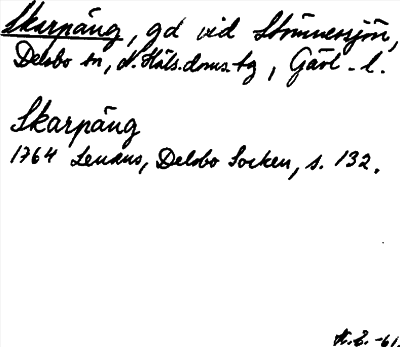 Skarpäng, gd vid Stömnessjön,
Delsbo sn, N. Häls. doms. tg, Gävl. l.
Skarpäng
1764 Lenæus, Delsbo Socken, s. 132.
-61.